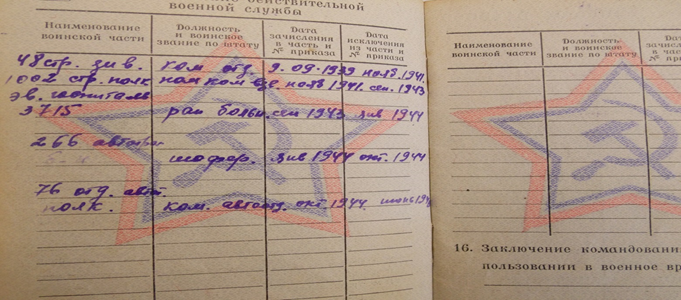 действительной
военной службы
Наименование воинской части
Должность и воинское звание по штату
Дата зачисления в часть и № приказа
Дата исключения из части и № приказа
48 стр. див. ком. отд. 9.09.1939 нояб. 1941.
1002 стр. полк пом ком вз. нояб 1941. сен. 1943
эв. госпиталь
3715 ран больн. сен 1943 янв 1944
266 автобат
шофер. янв 1944 окт. 1944
76 отд. авт.
полк. ком. автоотд. окт. 1944. июнь 194
Наименование воинской части
Должность и воинское звание по штату
16. Заключение командовани
пользовании в военное вр